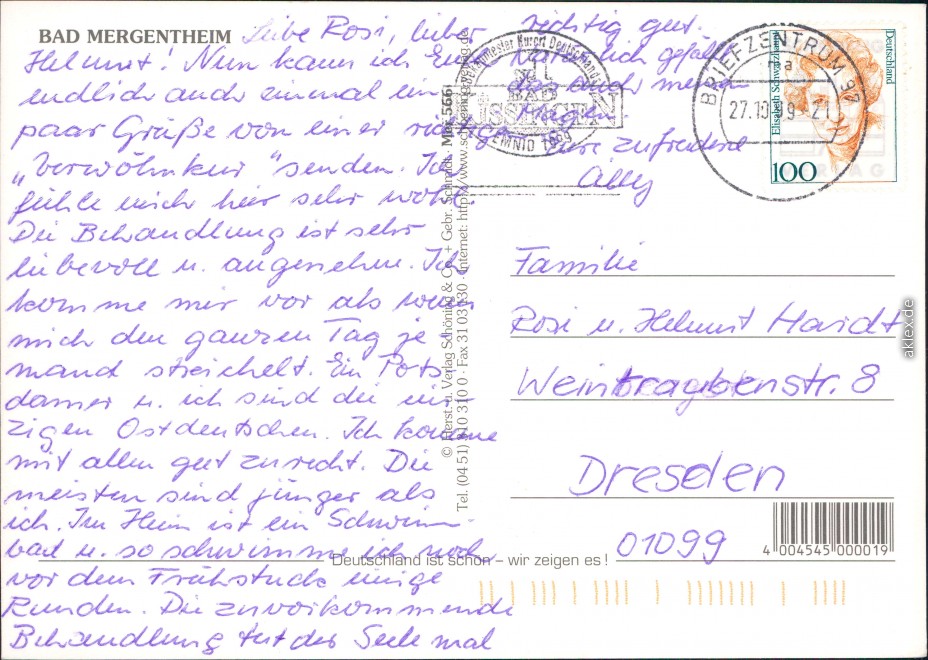 BAD MERGENTHEIM
Liebe Rosi, lieber
Helmut! Nun kann ich Euch
endlich auch einmal ein
paar Grüße von einer richtige
„Verwöhnkur" senden. Ich
fühle mich hier sehr wohl.
Die Behandlung ist sehr
liebevoll u. angenehm. Ich
komme mir vor als wenn
mich den ganzen Tag je
mand streichelt. Ein Pots
damer u. ich sind die ein
zigen Ostdeutschen. Ich komme
mit allen gut zurecht. Die
meisten sind jünger als
ich. Im Heim ist ein Schwimm-
bad u. so schwimme ich noch
vor dem Frühstück einige
Runden. Die zuvorkommende
Behandlung tut der Seele mal
richtig gut.
Natürlich gefällt
auch mein
Magen.
Eure zufriedene
Ally
© Herst. u. Verlag Schöning & Co. + Gebr. Schmidt
Mer 566
Tel. (04 51) 310 310 0 · Fax 31 03 330 · Internet: http://www.schoening-verlag.de
BAD
KISSINGEN
EMNID 1999
BRIEFZENTRUM 36
27.10.99-21
Deutschland
Elisabeth Schwarzhaupt
100
Familie
Rosi u. Helmut Hardt
Weintraubenstr. 8
Dresden
01099
Deutschland ist schön – wir zeigen es!
4 004545 000019
aklex.de